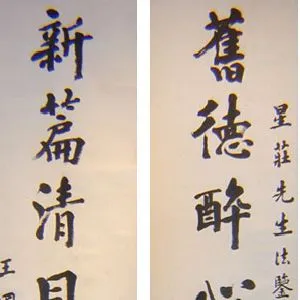 星莊先生法鑒
舊德醉心
新篇清目
王